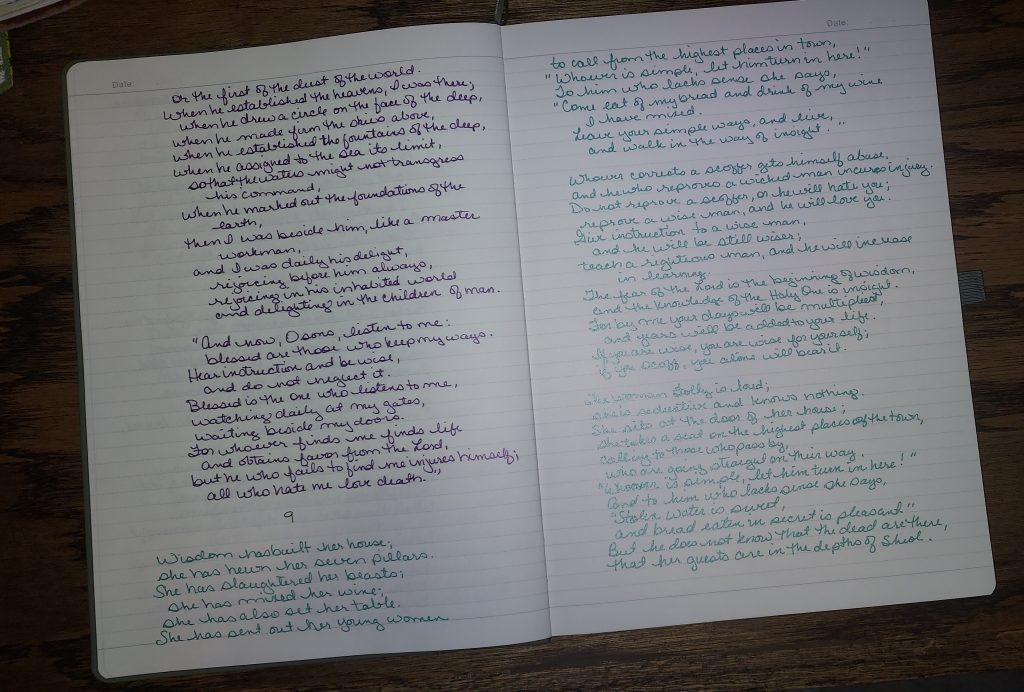 Date:
or the first of the dust of the world.
When he established the heavens, I was there;
when he drew a circle on the face of the deep,
when he made firm the skies above,
when he established the fountains of the deep,
when he assigned to the sea its limit,
so that the waters might not transgress
his command,
when he marked out the foundations of the
earth,
then I was beside him, like a master
workman,
and I was daily his delight,
rejoicing before him always,
rejoicing in his inhabited world
and delighting in the children of man.
"And now, O sons, listen to me:
blessed are those who keep my ways.
Hear instruction and be wise,
and do not neglect it.
Blessed is the one who listens to me,
watching daily at my gates,
waiting beside my doors.
For whoever finds me finds life
and obtains favor from the Lord,
but he who fails to find me injures himself;
all who hate me love death."
9
Wisdom has built her house;
she has hewn her seven pillars.
She has slaughtered her beasts;
she has mixed her wine;
she has also set her table.
She has sent out her young women
Date:
to call from the highest places in town,
"Whoever is simple, let him turn in here!"
To him who lacks sense she says,
"Come eat of my bread and drink of my wine
I have mixed.
Leave your simple ways, and live,
and walk in the way of insight."
Whoever corrects a scoffer gets himself abuse,
and he who reproves a wicked man incurs injury.
Do not reprove a scoffer, or he will hate you;
reprove a wise man, and he will love you.
Give instruction to a wise man,
and he will be still wiser;
teach a righteous man, and he will increase
in learning.
The fear of the Lord is the beginning of wisdom,
and the knowledge of the Holy One is insight.
For by me your days will be multiplied,
and years will be added to your life.
If you are wise, you are wise for yourself;
if you scoff, you alone will bear it.
The woman Folly is loud;
she is seductive and knows nothing.
She sits at the door of her house;
she takes a seat on the highest places of the town,
calling to those who pass by,
who are going straight on their way.
"Whoever is simple, let him turn in here!"
And to him who lacks sense she says,
"Stolen water is sweet,
and bread eaten in secret is pleasant."
But he does not know that the dead are there,
that her guests are in the depths of Sheol.